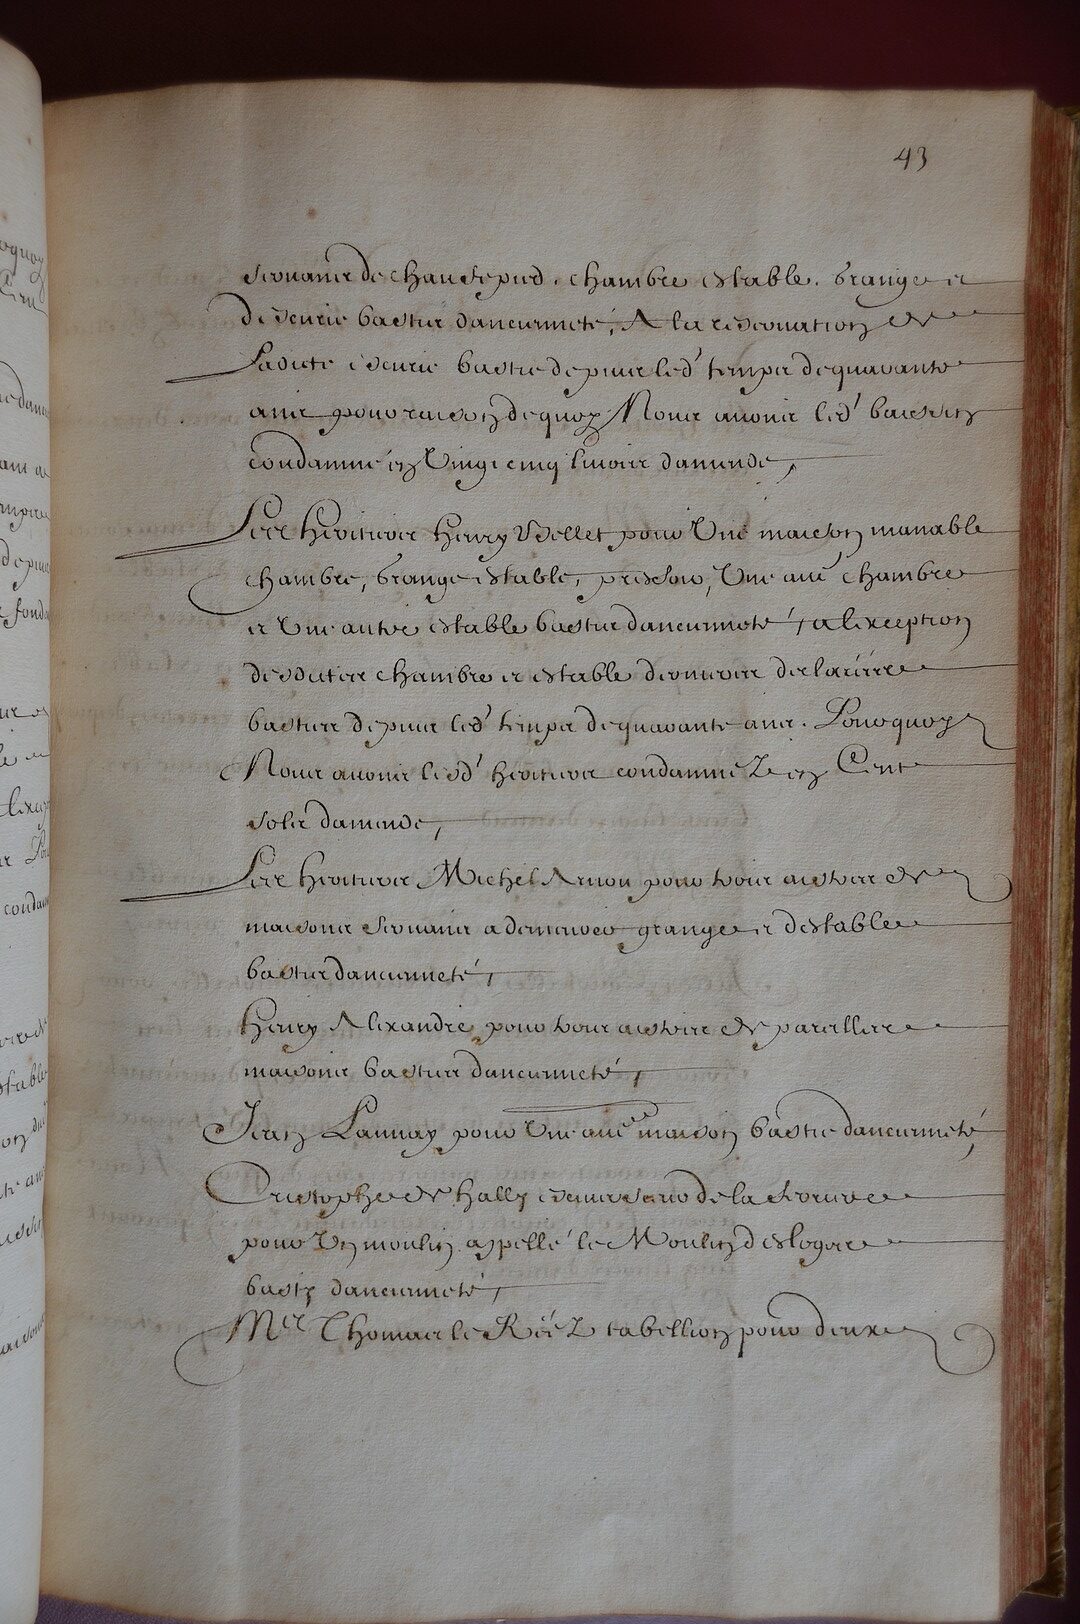 43
servants de chaufepied, chambre estable, grange et
descurie bastis danciennetté, A la reservation de
Ladicte escurie bastie depuis led' temps de quarante
ans, pour raison de quoy Nous avons led'
condamné en Vingt cinq livres damende,
Les heritiers Henry Vellet pour Une maison manable
chambre, grange estable, pressoir, Une aue chambre
et Une autre estable bastis danciennetté, a lexception
desdictes chambre et estable
basties depuis led' temps de quarante ans. Pourquoy
Nous avons lesd' heritiers condamnéz en Cent
solz damende,
Les heritiers Michel Arnou pour trois aistres de
maisons servants a demeurer grange et destable
bastis danciennetté,
Henry Alexandre pour trois aistres de pareilles
maisons bastis danciennetté,
Jean Launay pour Une aue maison bastie danciennetté,
Cristophe de Hally escuier sieur de la
pour Un moulin appellé le Moulin desloges
basty danciennetté,
Mer Thomas le Réez tabellion pour deux